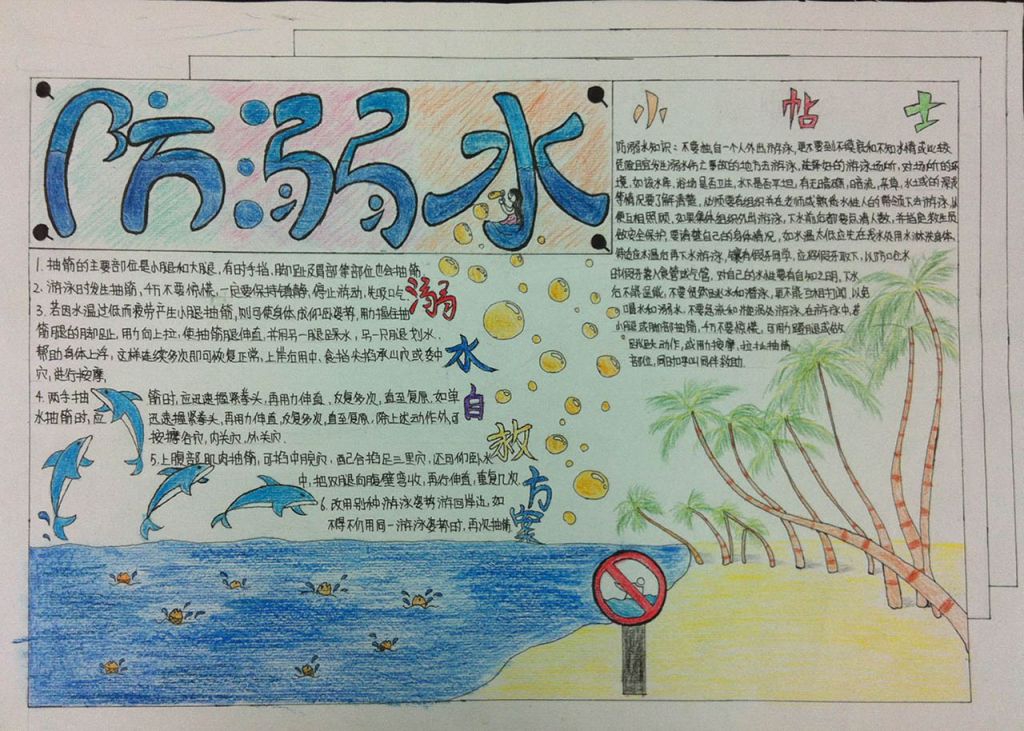 防溺水
1. 抽筋的主要部位是小腿和大腿,有时手指、脚趾及肩部等部位也会抽筋
2. 游泳时发生抽筋,千万不要惊慌,一定要保持镇静,停止游动,先吸口气
3. 若因水温过低而疲劳产生小腿抽筋,则可使身体成仰卧姿势,用力握住抽
筋腿的脚趾,用力向上拉,使抽筋腿伸直,并用另一腿踩水,另一只腿划水,
帮助身体上浮,这样连续多次即可恢复正常,上岸后用中、食指尖掐承山穴或委中
穴,进行按摩,
4. 两手抽筋时,应迅速握紧拳头,再用力伸直、反复多次,直至复原,如单
水抽筋时,应迅速握紧拳头,再用力伸直,反复多次,直至复原,除上述动作外,可
按摩合穴,内关穴,外关穴.
5. 上腹部肌肉抽筋,可掐中脘穴,配合掐足三里穴,还可仰卧水
中,把双腿向腹壁弯收,再行伸直,重复几次
6. 改用别种游泳姿势游回岸边,如
不得不仍用同一游泳姿势时,再次抽筋
溺水自救方案
小帖士
防溺水知识:不要独自一个人外出游泳,更不要到不摸底和不知水情或比较
危险且宜发生溺水伤亡事故的地方去游泳,选择好的游泳场所,对场所的环
境,如该水库、浴场是否卫生,水下是否平坦,有无暗礁、暗流、杂草,水域的深浅
等情况要了解清楚,必须要有组织并在老师或熟悉水性人的带领下去游泳,以
便互相照顾,如果集体组织外出游泳,下水前后都要点清人数,并指定救生员
做安全保护,要清楚自己的身体情况,如水温太低应先在浅水处用水淋洗身体,
待适应水温后再下水游泳,镶有假牙同学,应将假牙取下,以防呛水
时假牙落入食管或气管,对自己的水性要有自知之明,下水
后不能逞能,不要贸然跳水和潜泳,更不能互相打闹,以免
喝水和溺水,不要急流和漩涡处游泳,在游泳中,若
小腿或脚部抽筋,千万不要惊慌,可用力蹬腿或做
跳跃动作,或用力按摩、拉扯抽筋
部位,同时呼叫同伴救助.